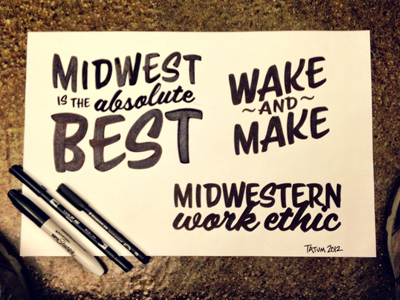 MIDWEST
IS THE absolute
BEST
WAKE
~AND~
MAKE
MIDWESTERN
work ethic
TATUM 2012